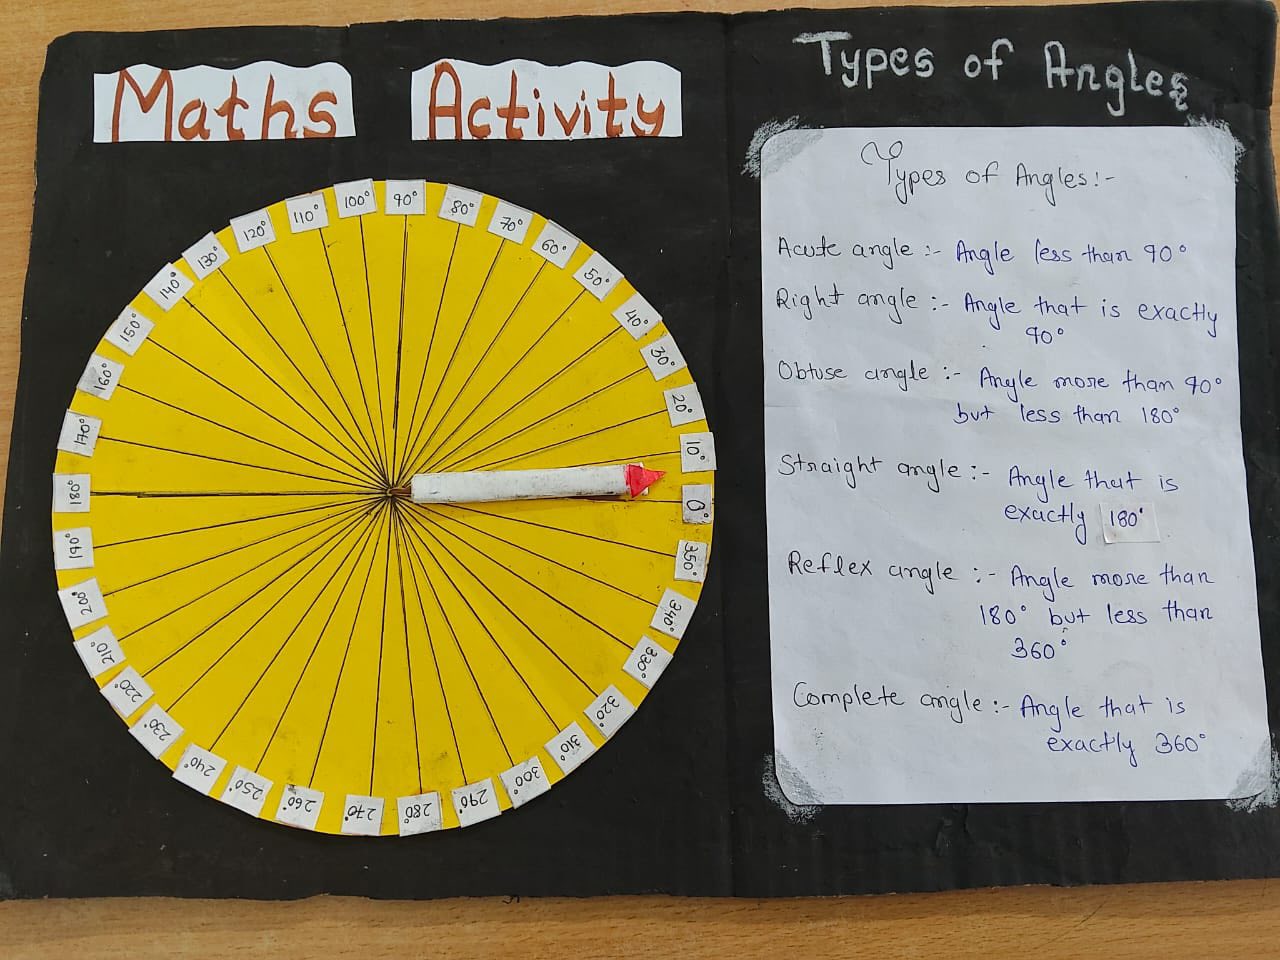 Maths Activity
Types of Angles
90°
80°
70°
60°
50°
40°
30°
20°
10°
0°
350°
340°
330°
320°
310°
300°
290°
280°
270°
260°
250°
240°
230°
220°
210°
200°
190°
180°
170°
160°
150°
140°
130°
120°
110°
100°
Types of Angles:-
Acute angle :- Angle less than 90°
Right angle :- Angle that is exactly
90°
Obtuse angle :- Angle more than 90°
but less than 180°
Straight angle :- Angle that is
exactly 180°
Reflex angle :- Angle more than
180° but less than
360°
Complete angle :- Angle that is
exactly 360°